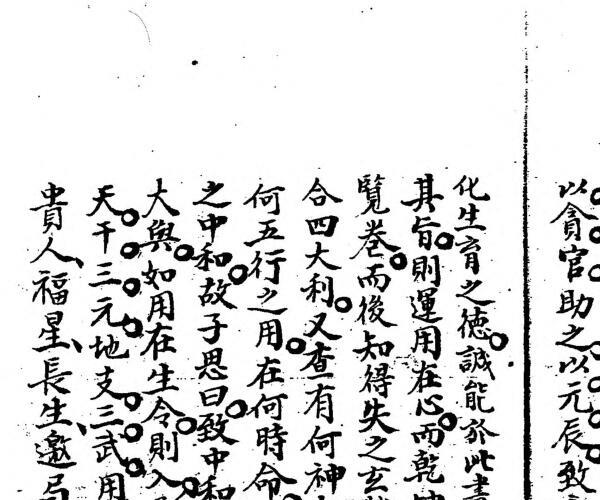 以貪官助之以元辰致
化生育之徳誠能於此書
其旨則運用在心而乾坤
覽卷而後知得失之玄
合四大利又查有何神
何五行之用在何時命
之中和故子思曰致中和
大與如用在生令則入
天干三元地支三武用
貴人、福星、長生、邀局